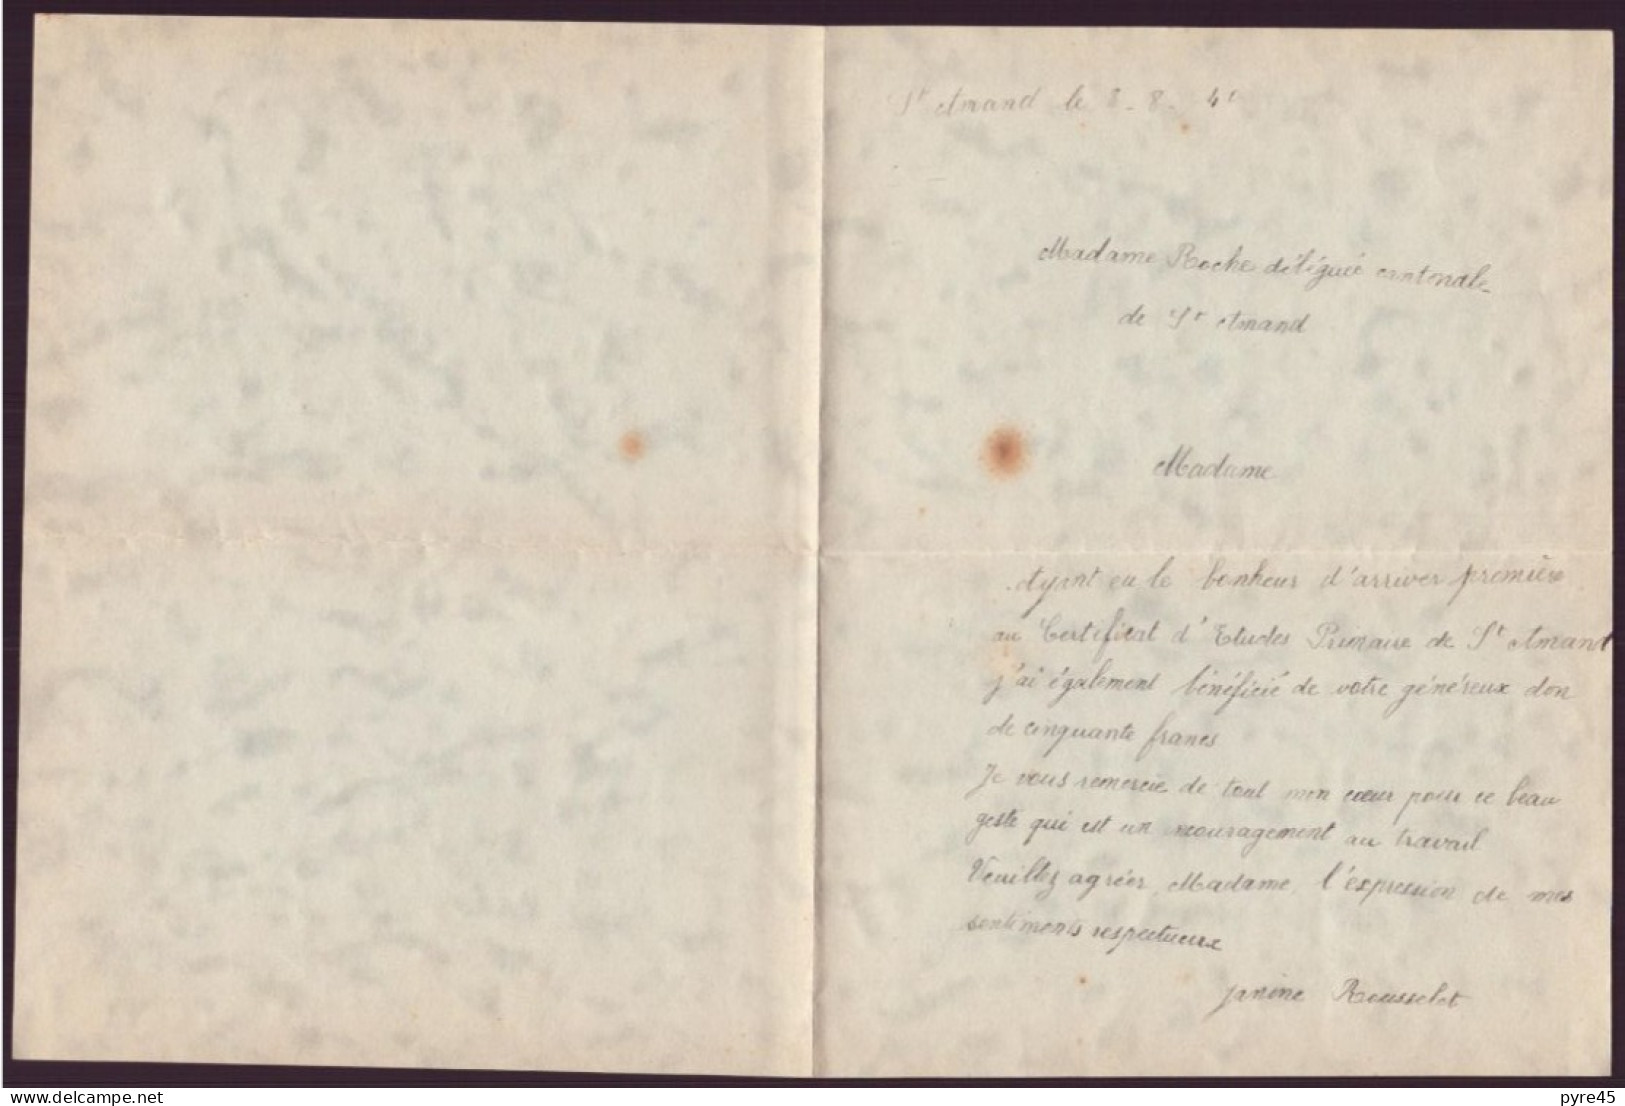 St Amand le 8-8-41
Madame Roche déléguée cantonale
de St Amand
Madame
Ayant eu le bonheur d'arriver première
au Certificat d'Etudes Primaire de St Amand
j'ai également bénéficié de votre généreux don
de cinquante francs
Je vous remercie de tout mon cœur pour ce beau
geste qui est un encouragement au travail
Veuillez agréer, Madame, l'expression de mes
sentiments respectueux
Janine Rousselet
www.delcampe.net
pyre45